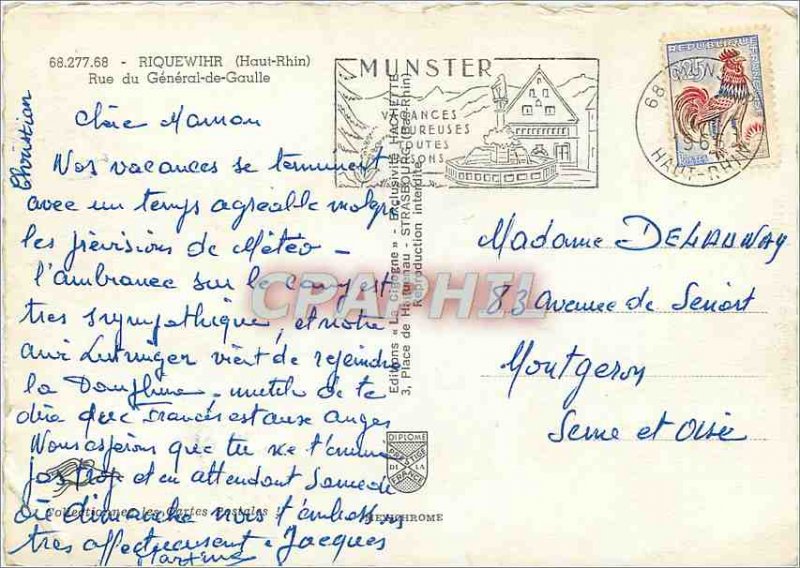 68.277.68 - RIQUEWIHR (Haut-Rhin)
Rue du Général-de-Gaulle
Christian
chère Maman
Nos vacances se terminent
avec un temps agréable malgré
les prévisions de Météo -
l'ambiance sur le camp est
très sympathique, et notre
ami vient de rejoindre
la Dauphine. inutile de te
dire que Francis est aux anges
Nous espérons que tu ne t'ennuies
pas trop et en attendant Samedi
ou dimanche nous t'embrassons
très affectueusement. Jacques
Martine
Collectionnez les Cartes Postales !
MUNSTER
VACANCES
HEUREUSES
TOUTES
SAISONS
Editions « La Cigogne » - Exclusivité HACHETTE
3, Place de Haguenau - STRASBOURG (Bas-Rhin)
Reproduction interdite
DIPLOME
PRESTIGE
DE LA
FRANCE
MEXICHROME
REPUBLIQUE FRANÇAISE
0,25
68 MUNSTER
HAUT-RHIN
Madame DELAUNAY
83 avenue de Sénart
Montgeron
Seine et Oise
CPAPHIL